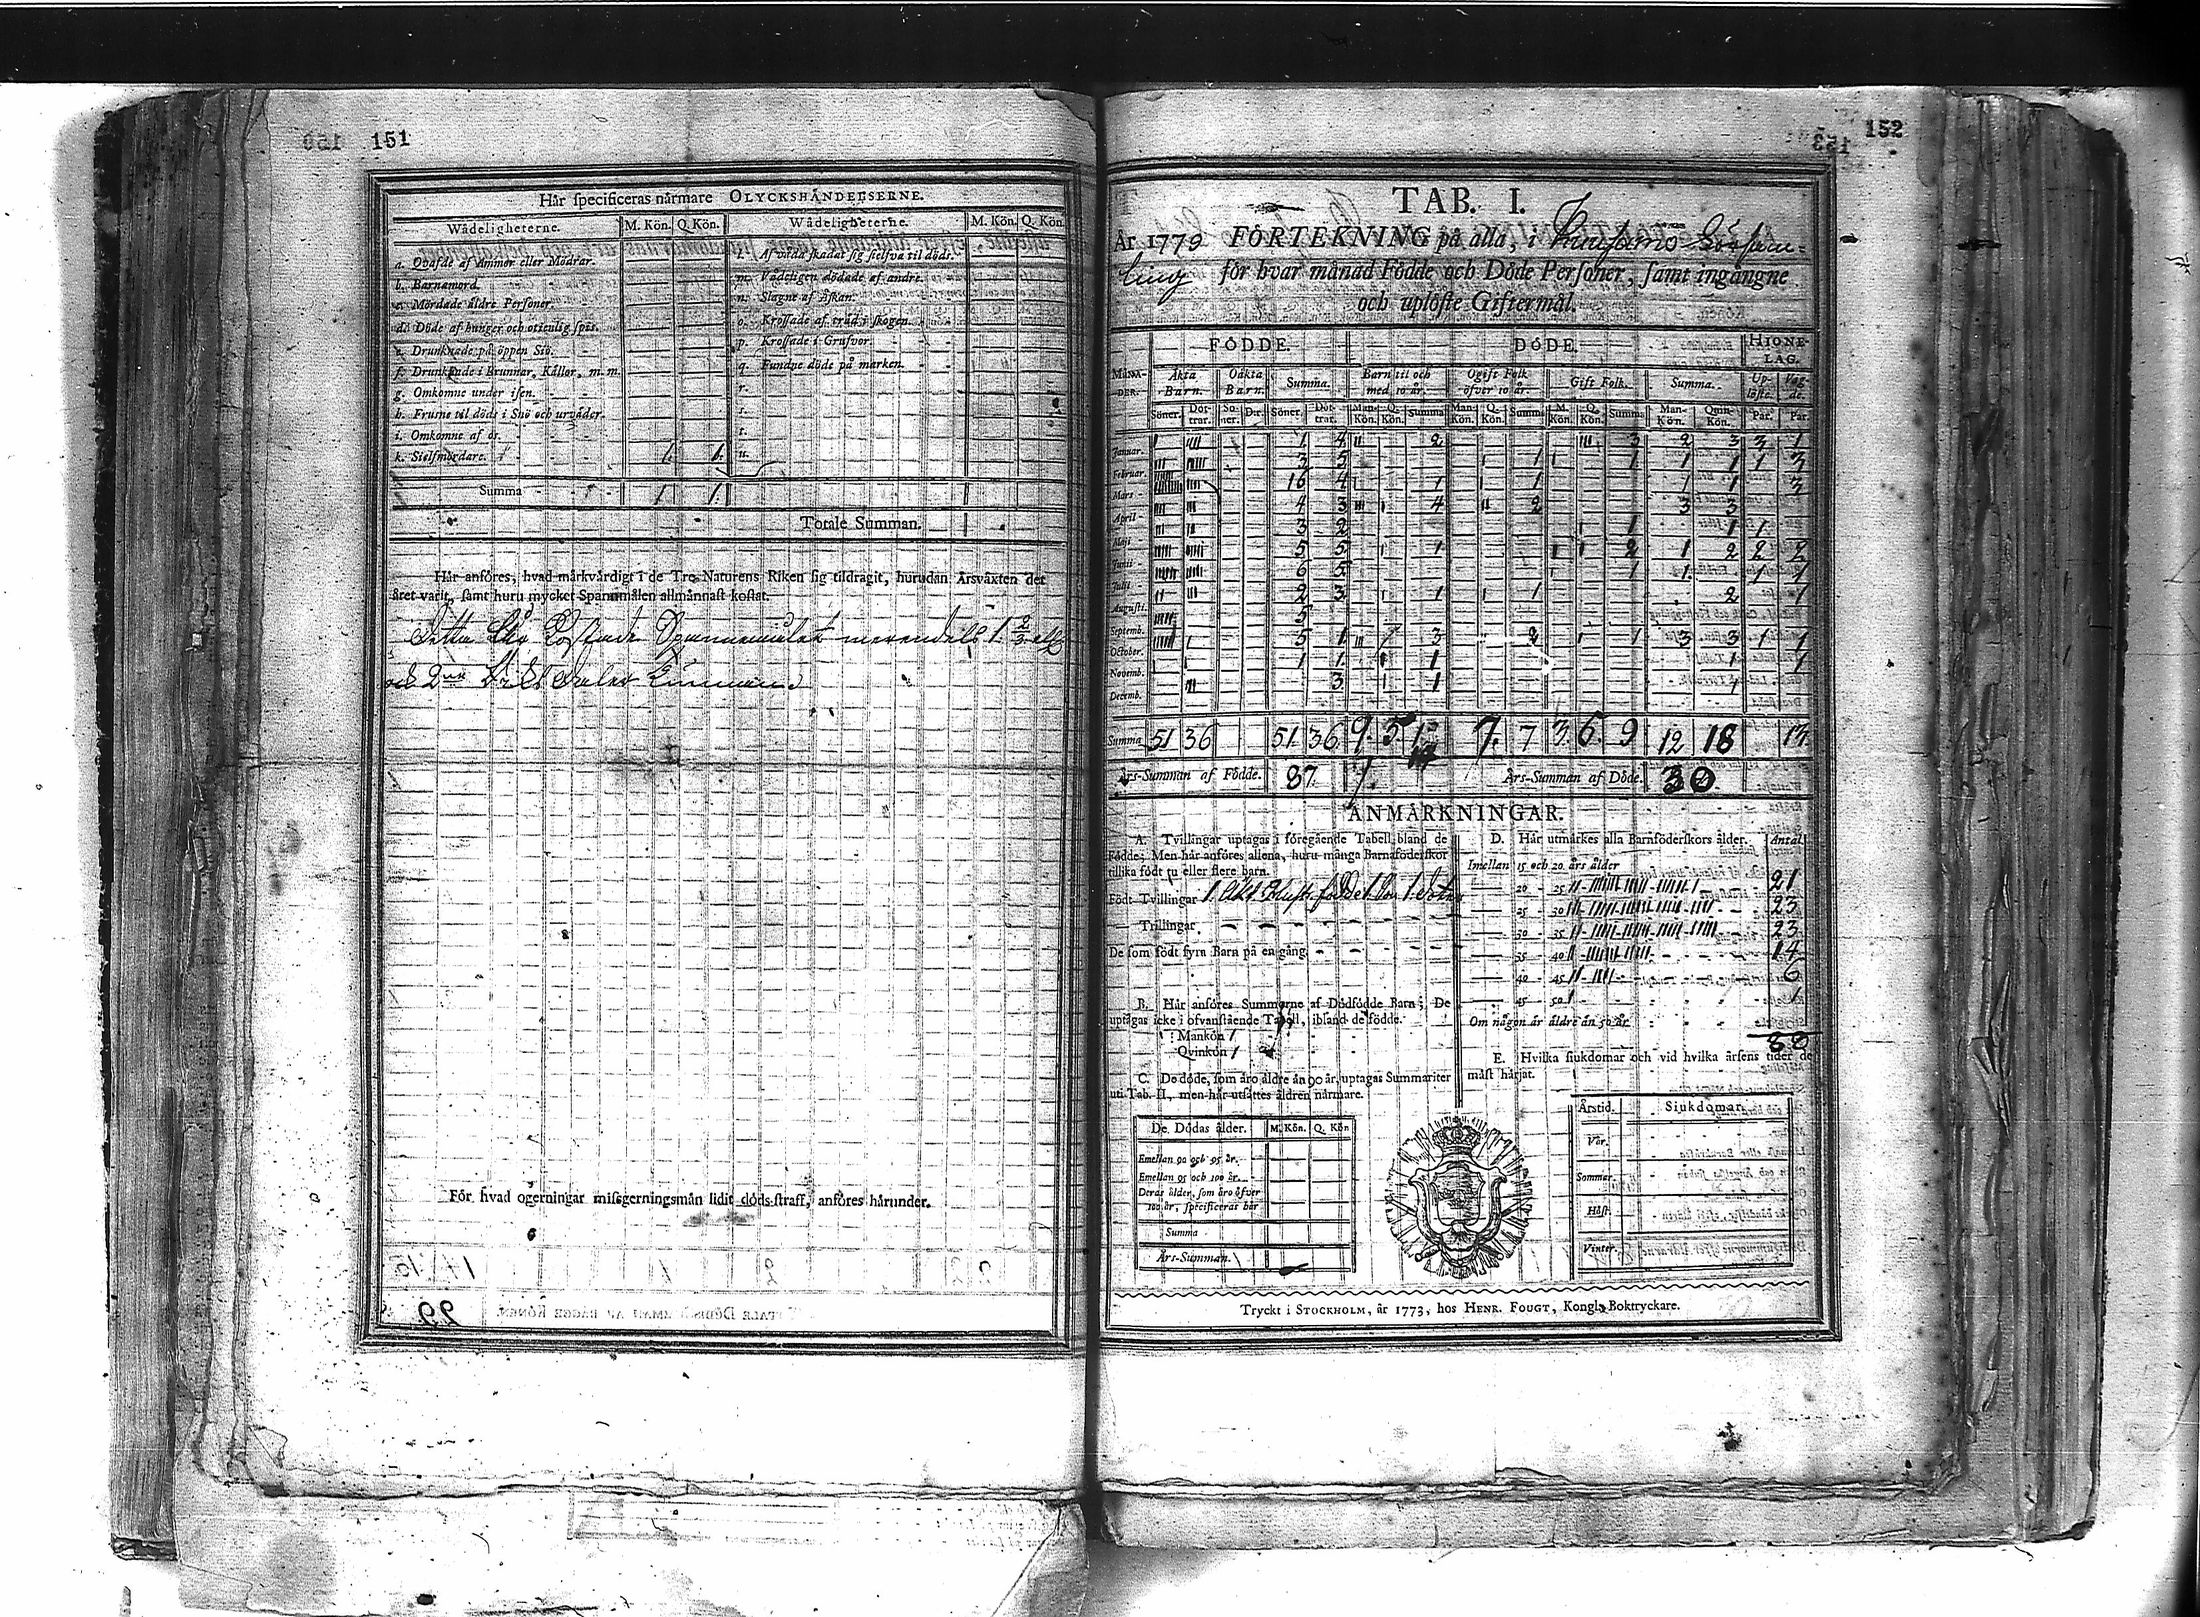 151
Här specificeras närmare OLYCKSHÄNDELSERNE.
Wådeligheterne. M. Kön. Q. Kön. Wådeligheterne. M. Kön. Q. Kön.
a. Qvafde af Ammor eller Mödrar.
b. Barnamord.
c. Mördade äldre Personer.
d. Döde af hunger och otienlig spis.
e. Drunknade på öppen Siö.
f. Drunknade i Brunnar, Källor, m. m.
g. Omkomne under isen.
h. Frusne til döds i Snö och urväder.
i. Omkomne af os.
k. Sielfmördare. 1. 1.
Summa 1 1.
l. Af våda skadat sig sielfva til döds.
m. Vådeligen dödade af andre.
n. Slagne af Åskan.
o. Krossade af träd i skogen.
p. Krossade i Grufvor.
q. Fundne döde på marken.
r.
s.
t.
u.
Totale Summan.
Här anföres, hvad märkvärdigt i de Tre Naturens Riken sig tildragit, hurudan Årsväxten det
året varit, samt huru mycket Spanmålen allmännast kostat.
Detta Åhr Kostade Spannemålet merendels 1 2/3
För hvad ogerningar missgerningsmän lidit döds-straff, anföres härunder.
152
TAB. I.
År 1779 FÖRTEKNING på alla, i Kuusamo Försam=
ling för hvar månad Födde och Döde Personer, samt ingångne
och uplöste Giftermål.
MÅNA-DER. FÖDDE. DÖDE. HIONE-LAG.
Äkta Barn. Oäkta Barn. Summa. Barn til och med 10 år. Ogift Folk öfver 10 år. Gift Folk. Summa. Up-löste. Vig-de.
Söner. Döt-trar. So-ner. Dtr. Söner. Döt-trar. Man-Kön. Q. Kön. Summa Man-Kön. Q. Kön. Summa M. Kön. Q. Kön. Summa Man-Kön. Quin-Kön. Par. Par.
Januar. I IIII 1 4 II 2 III 3 2 3 3 1
Februar. III IIIII 3 5 I 1 I 1 1 1 1 3
Mars 16 4 I 1 I 1 1 1 3
April IIII III 4 3 III I 4 II 2 3 3
Maji III II 3 2 I 1 1 1
Junii IIIII IIIII 5 5 I 1 I I 2 1 2 2 2
Julii 6 5 I 1 1 1 1
Augusti. II III 2 3 I 1 I 1 2 1
Septemb. IIIII 5
October. IIIII I 5 1 III 3 II 2 I 1 3 3 1 1
Novemb. 1 1 1 1 1
Decemb. III 3 I 1 1
Summa 51 36 51 36 9. 5 7. 7 3. 6. 9 12 18 13
Års-Summan af Födde. 87. Års-Summan af Döde. 30
ANMÄRKNINGAR.
A. Tvillingar uptagas i föregående Tabell bland de
Födde; Men här anföres allena, huru många Barnaföderskor
tillika födt tu eller flere barn.
Födt Tvillingar
— Trillingar
De som födt fyra Barn på en gång.
B. Här anföres Summorne af Dödfödde Barn; De
uptagas icke i ofvanstående Tabell, ibland de födde.
Mankön 1
Qvinkön 1
C. De döde, som äro äldre än 90 år, uptagas Summariter
uti Tab. II, men här utsättes åldren närmare.
De Dödas ålder. M. Kön. Q. Kön
Emellan 90 och 95 år.
Emellan 95 och 100 år.
Deras ålder, som äro öfver
100 år, specificeras här
Summa
Års-Summan.
D. Här utmärkes alla Barnföderskors ålder. Antal.
Imellan 15 och 20 års ålder
20 25 21
25 30 23
30 35 23
35 40 14
40 45 6
45 50 1 1
Om någon är äldre än 50 år.
88
E. Hvilka siukdomar och vid hvilka årsens tider de
mäst härjat.
Årstid. Siukdomar.
Vår.
Sommar.
Höst.
Vinter.
Tryckt i STOCKHOLM, år 1773, hos HENR. FOUGT, Kongl. Boktryckare.